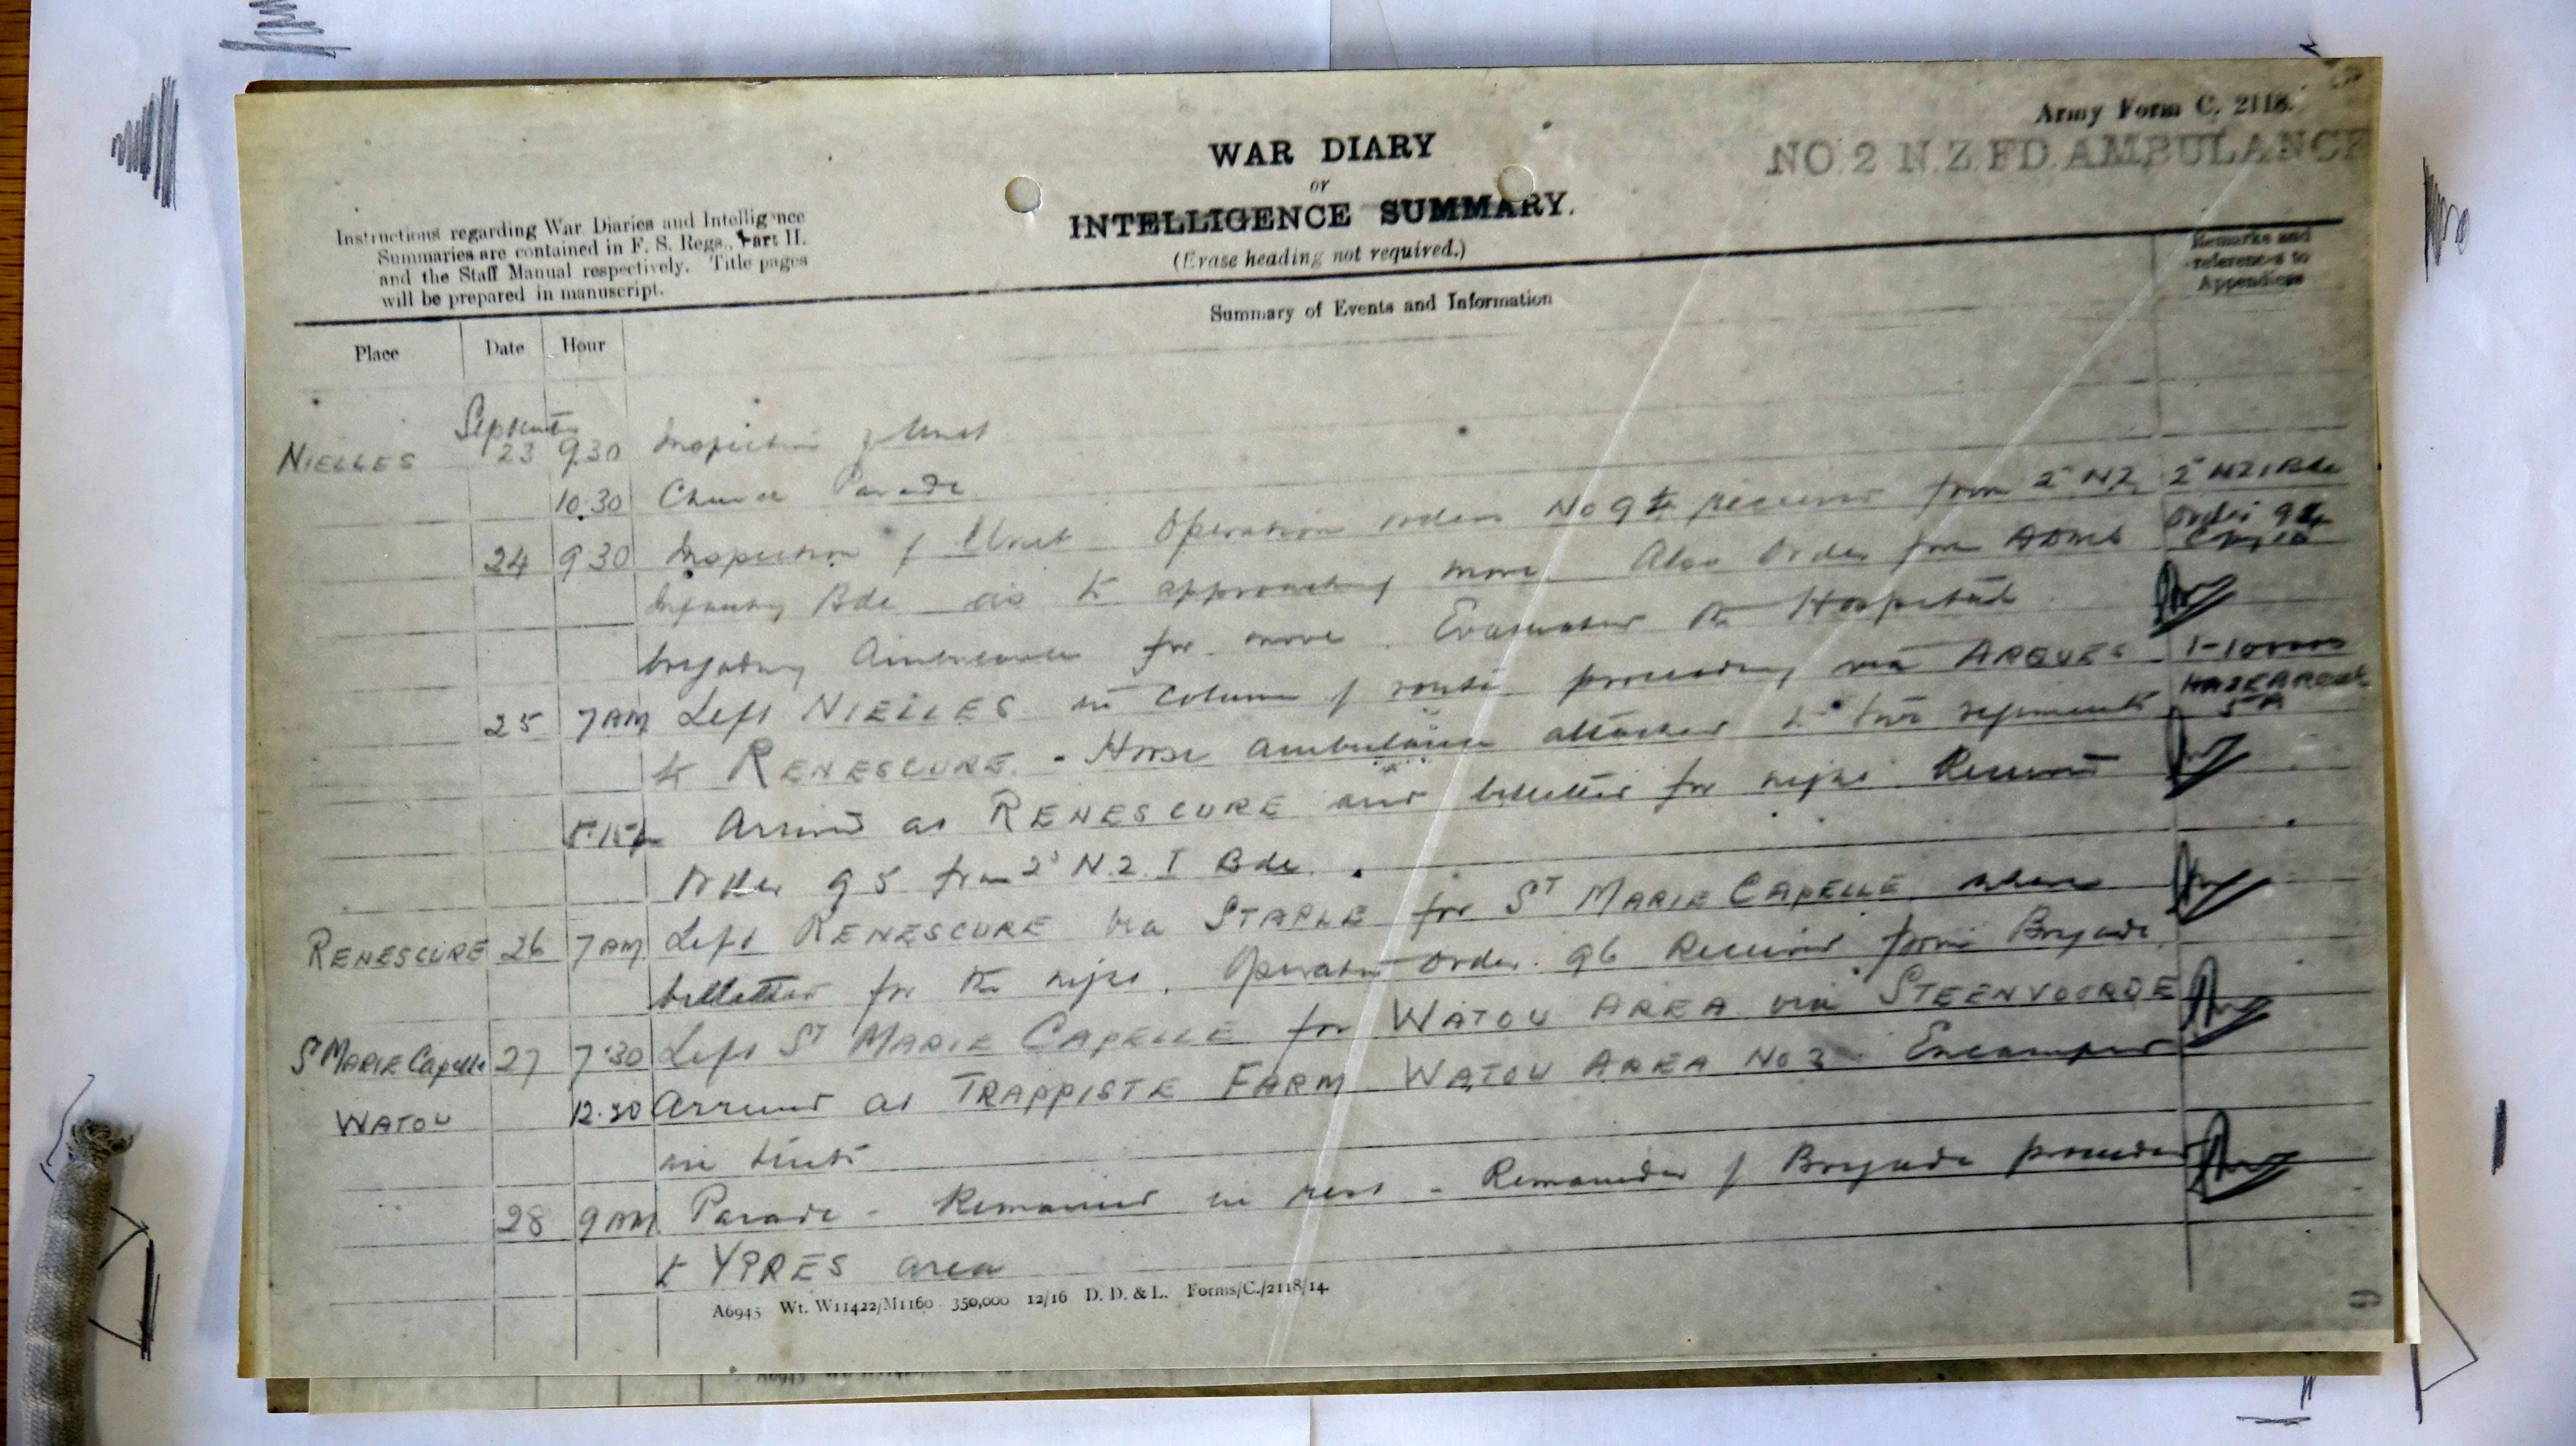 Army Form C. 2118.
NO. 2 N.Z. FD. AMBULANCE
WAR DIARY
or
INTELLIGENCE SUMMARY.
(Erase heading not required.)
Instructions regarding War Diaries and Intelligence
Summaries are contained in F. S. Regs., Part II.
and the Staff Manual respectively. Title pages
will be prepared in manuscript.
Remarks and
references to
Appendices
Summary of Events and Information
Place Date Hour
September
NIELLES 23 9.30 Inspection of Unit
10.30 Church Parade
24 9.30 Inspection of Unit Operation orders No 94 received from 2nd NZ 2nd NZ I Bde
Infantry Bde as to approaching move Also Order from ADMS Order 94
brigading Ambulance for move. Evacuated the Hospital
25 7AM Left NIELLES in column of route proceeding via ARQUES 1-100000
to RENESCURE. - Horse ambulance attached to two regiments HAZEBROUCK 5A
5.15p Arrived at RENESCURE and billetted for night Received
Order 95 from 2nd N.Z. I Bde.
RENESCURE 26 7AM Left RENESCURE via STAPLE for ST MARIE CAPELLE where
billetted for the night. Operation Order 96 Received from Brigade.
ST MARIE Capelle 27 7.30 Left ST MARIE CAPELLE for WATOU AREA via STEENVOORDE
WATOU 12.30 Arrived at TRAPPISTE FARM WATOU AREA No 3. Encamped
in tents
28 9AM Parade - Remained in rest - Remainder of Brigade proceeded
to YPRES area
A6945 Wt. W11422/M1160 350,000 12/16 D. D. & L. Forms/C./2118/14.